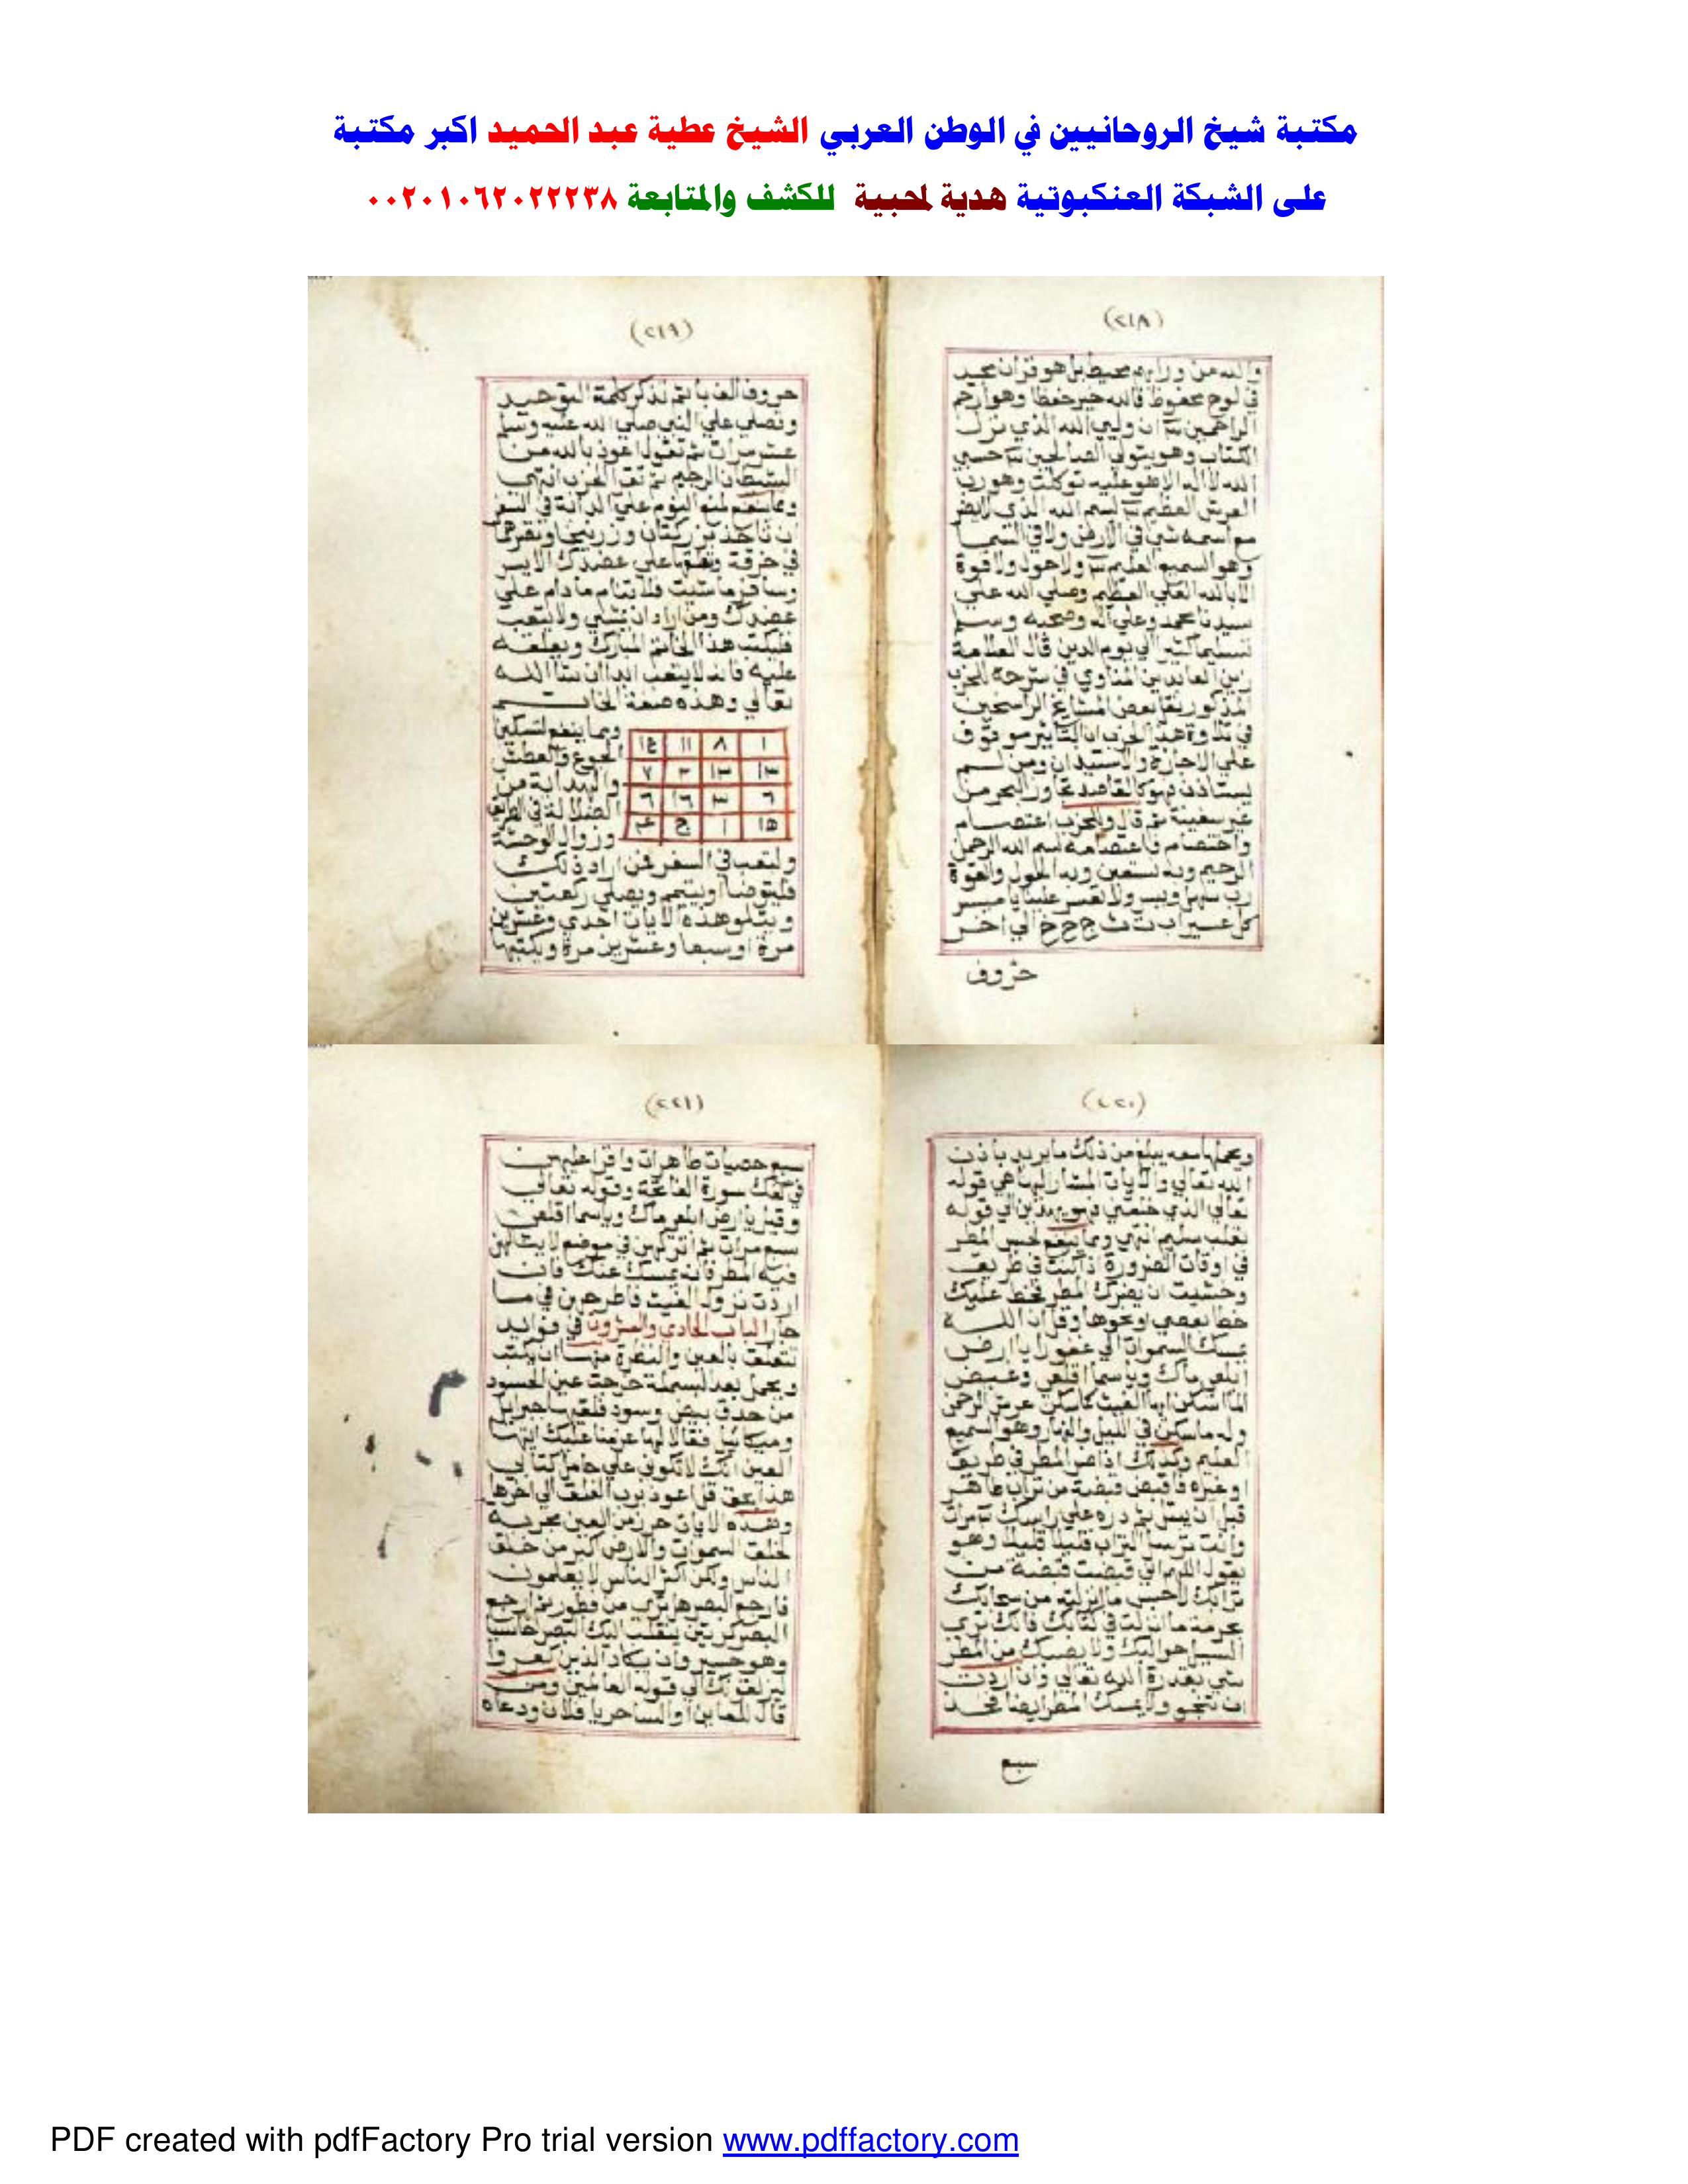 مكتبة شيخ الروحانيين في الوطن العربي الشيخ عطية عبد الحميد اكبر مكتبة
على الشبكة العنكبوتية هدية لمحبية للكشف والمتابعة ٠٠٢٠١٠٦٢٠٢٢٢٣٨
(٢١٨)
والله من ورايهم محيط بل هو قران مجيد
في لوح محفوظ فالله خير حفظا وهو ارحم
الراحمين ان وليي الله الذي نزل
الكتاب وهو يتولي الصالحين حسبي
الله لا اله الا هو عليه توكلت وهو رب
العرش العظيم بسم الله الذي لا يضر
مع اسمه شي في الارض ولا في السما
وهو السميع العليم ولا حول ولا قوة
الا بالله العلي العظيم وصلي الله علي
سيدنا محمد وعلي اله وصحبه وسلم
تسليما كثيرا الي يوم الدين قال العلامة
زين العابدين المناوي في شرحه للحزب
المذكور بعض المشايخ الراسخين
في تلاوة هذا الحزب ان التاثير موقوف
علي الاجازة والاستيذان ومن لم
يستاذن فهو كالقاصد تجاوز البحر من
غير سفينة ثم قال وللحزب اعتصام
واختصام فاعتصامه بسم الله الرحمن
الرحيم وبه نستعين وبه الحول والقوة
رب سهل ويسر ولا تعسر علينا يا ميسر
كل عسير اب ت ث ج ح خ الي اخر
حروف
(٢١٩)
حروف الف با ثم تذكر كلمة التوحيد
وتصلي علي النبي صلي الله عليه وسلم
عشر مرات ثم تقول اعوذ بالله من
الشيطان الرجيم ثم تقرا الحزب انتهي
ومما ينفع لمنع النوم علي الدابة في السفر
ان تاخذ بزر كتان وزرنيخا
في خرقة علي عضدك الايسر
وسافر ما شيت فلا تنام ما دام علي
عضدك ومن اراد ان يمشي ولا يتعب
فليكتب هذا الخاتم المبارك ويعلقه
عليه فانه لا يتعب ابدا ان شا الله
تعالي وهذه صفة الخاتم
١ ٨ ١١ ١٤
١٣ ١٢ ٢ ٧
٦ ٣ ١٦ ٦
١٥ ١
ومما ينفع لتسكين
الجوع والعطش
والهداية من
الضلالة في الطريق
وزوال الوحشة
والتعب في السفر فمن اراد ذلك
فليتوضا او يتيمم ويصلي ركعتين
ويتلو هذه الايات احدي وعشرين
مرة او سبعا وعشرين مرة ويكتبها
(٢٢٠)
ويحملها معه يبلغ من ذلك ما يريد باذن
الله تعالي والايات المشار اليها هي قوله
تعالي الذي خلقني فهو يهدين الي قوله
بقلب سليم انتهي ومما ينفع لحبس المطر
في اوقات الضرورة اذا كنت في طريق
وخشيت ان يضرك المطر فخط عليك
خطا بعصي او نحوها وقرا ان الله
يمسك السموات الي غفورا يا ارض
ابلعي ماك ويا سما اقلعي وغيض
الما اسكن ايها الغيث كما سكن عرش الرحمن
وله ما سكن في الليل والنهار وهو السميع
العليم وكذلك اذا المطر في طريق
او غيره فاقبض قبضة من تراب طاهر
قبل ان يبتل ثم دره علي راسك مرات
وانت ترسل التراب قليلا قليلا وهو
يقول اللهم اني قبضت قبضة من
ترابك لاحبس ما انزلته من سحابك
بحرمة ما انزلت في كتابك فانك تري
السيل حواليك ولا يصيبك من المطر
شي بقدرة الله تعالي وان اردت
ان تنجو ولا يمسك المطر ايضا فخذ
سبع
(٢٢١)
سبع حصيات طاهرات واقرا عليهن
في كفك سورة الفاتحة وقوله تعالي
وقيل يا ارض ابلعي ماك ويا سما اقلعي
سبع مرات ثم اتركهن في موضع لا ينالهن
فيه المطر فانه يمسك عنك فان
اردت نزول الغيث فاطرحهن في ما
جار الباب الحادي والعشرون في فوايد
تتعلق بالعين والنظرة منها ان يكتب
ويحمل بعد البسملة خرجت عين الحسود
من حدق بيض وسود فلقيها جبرايل
وميكاييل فقالا لها عزمنا عليك ايتها
العين انك لا تكوني علي حامل كتابي
هذا بحق قل اعوذ برب الفلق الي اخرها
وهذه الايات حرز من العين مجربة
لخلق السموات والارض اكبر من خلق
الناس ولكن اكثر الناس لا يعلمون
فارجع البصر هل تري من فطور ثم ارجع
البصر كرتين ينقلب اليك البصر خاسيا
وهو حسير وان يكاد الذين كفروا
ليزلقونك الي قوله العالمين ومن
قال للمعاين او الساحر يا فلان ودعاه
PDF created with pdfFactory Pro trial version www.pdffactory.com